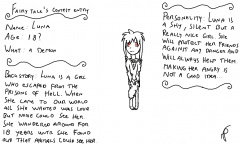 Fairy Tale's contest entry
Name: Luna
Age: 18?
What: a demon
Backstory: Luna is a girl
who escaped from the
prisons of Hell. When
she came to our world
all she wanted was love
but none could see her
she wandered around for
18 years until she found
out that artists could see her
Personality: Luna is
a shy, silent but a
really nice girl. She
will protect her friends
against any danger and
will always help them
making her angry is
not a good idea...